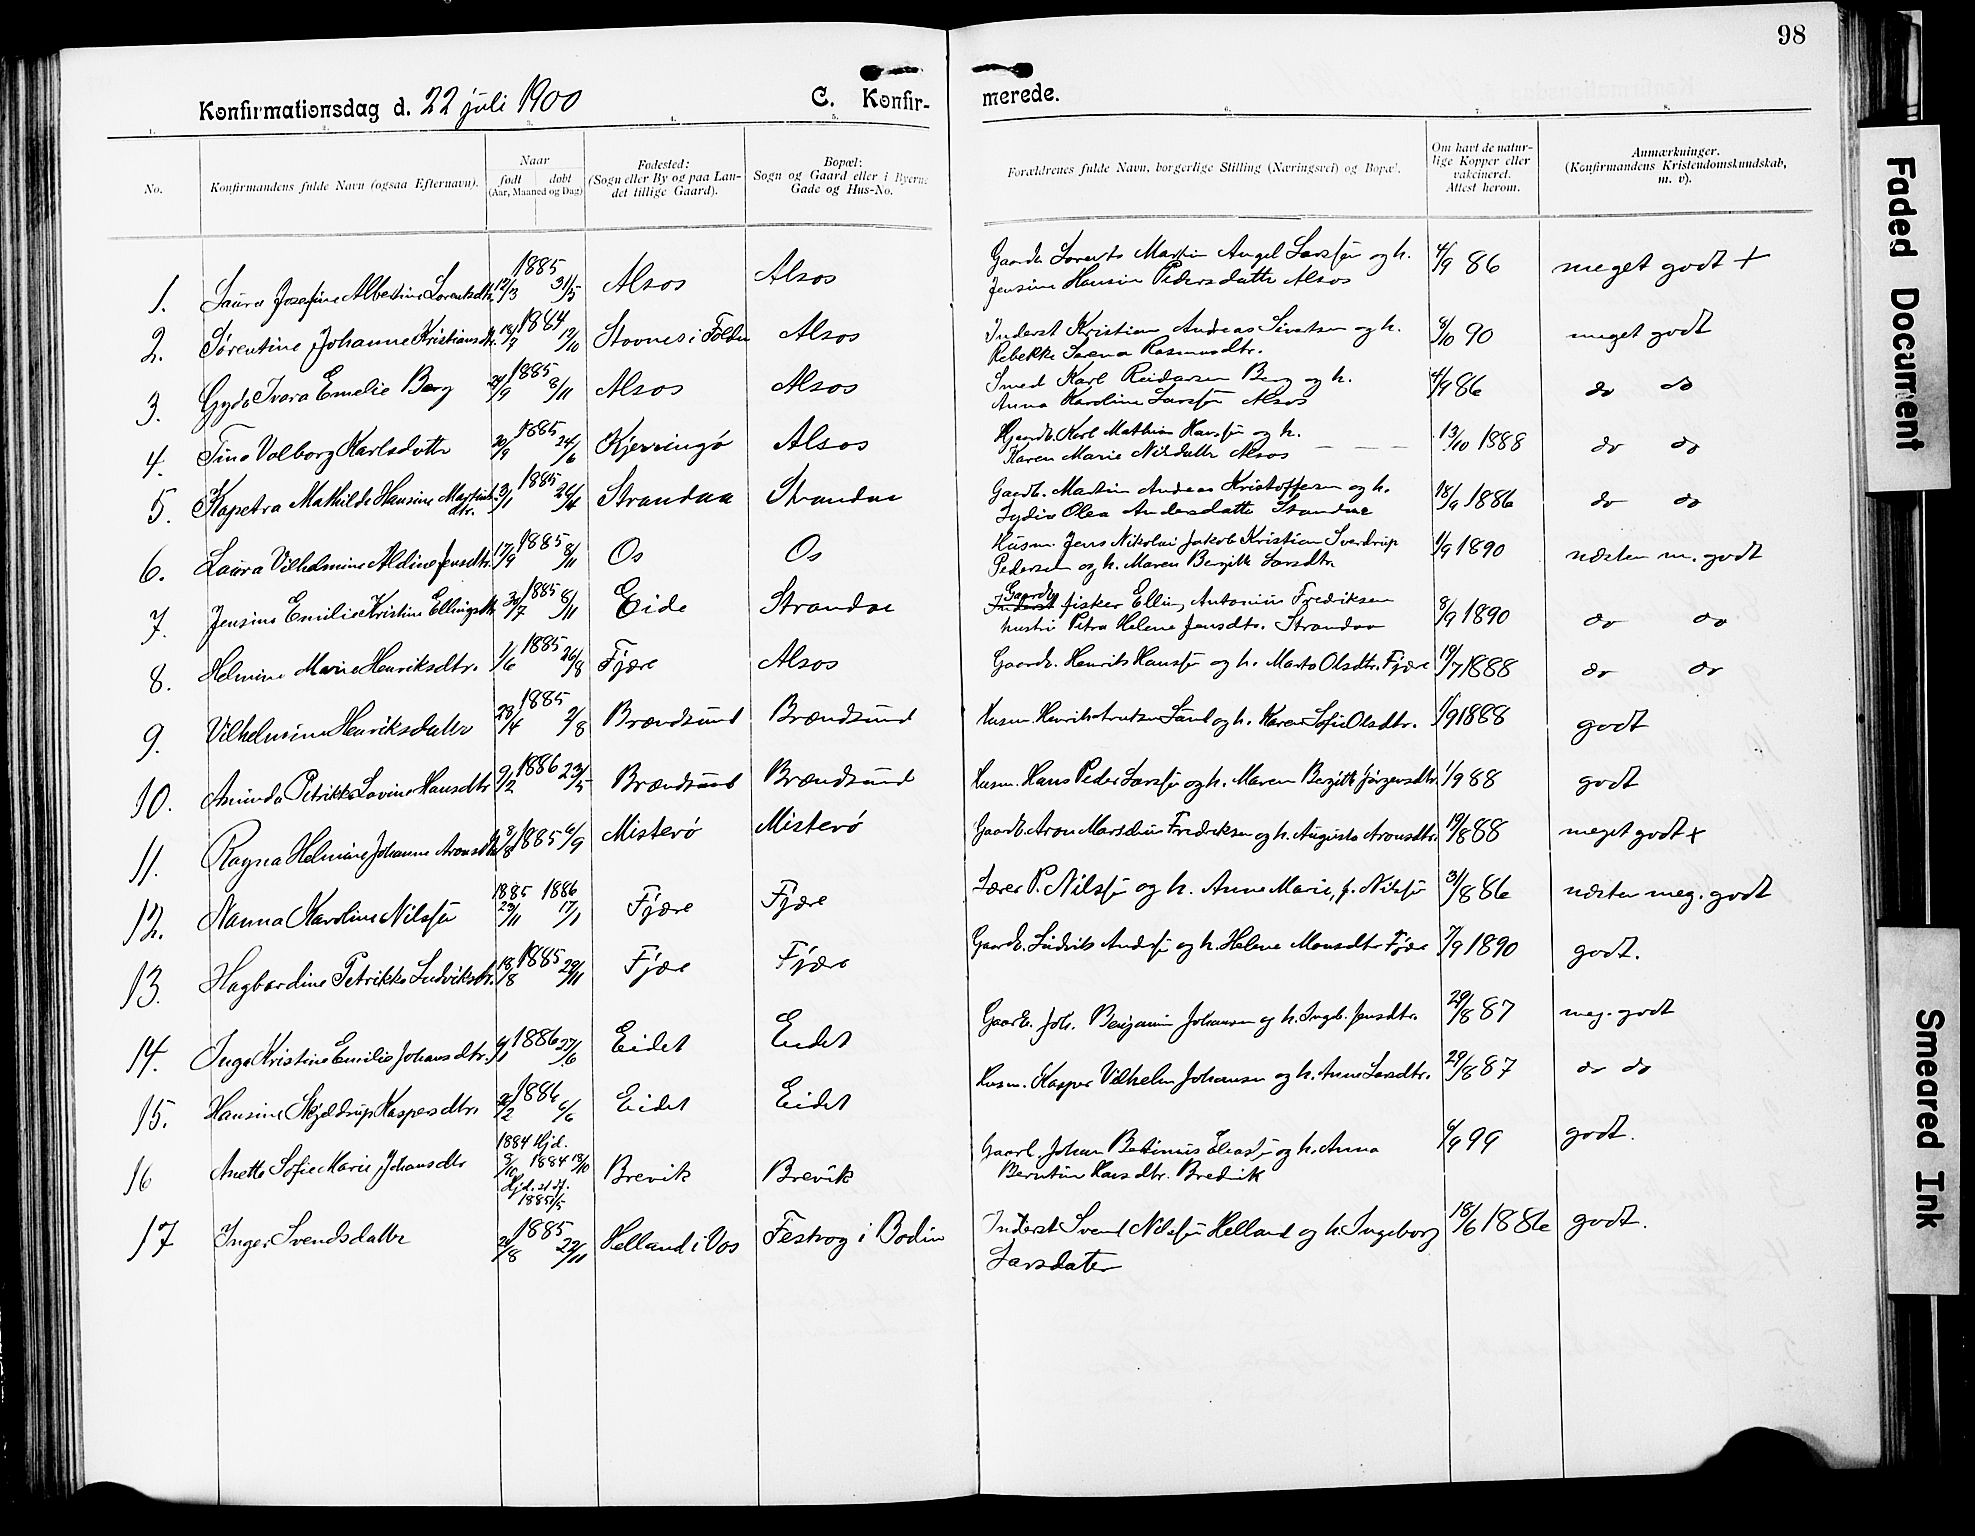 98
Konfirmationsdag d. 22 juli 1900
C. Konfir-
merede.
1. 2. 3. 4. 5. 6. 7. 8.
No.
Konfirmandens fulde Navn (ogsaa Efternavn).
Naar
født døbt
(Aar, Maaned og Dag)
Fødested:
(Sogn eller By og paa Lan-
det tillige Gaard).
Bopæl:
Sogn og Gaard eller i Byerne
Gade og Hus-No.
Forældrenes fulde Navn, borgerlige Stilling (Næringsvei) og Bopæl.
Om havt de natur-
lige Kopper eller
vakcineret.
Attest herom.
Anmærkninger.
(Konfirmandens Kristendomskundskab,
m. v).
1. Laura Josefine Albertine Lorentsdtr. 1885 12/3 31/5 Alsos Alsos
Gaardb. Lorents Martin Angel Larssøn og h. 4/9 86 meget godt +
Jensine Hansine Pedersdatter Alsos
2. Sørentine Johanne Kristiansdtr. 18/7 1884 12/10 Stovnes i Folden Alsos
Inderst Kristian Andreas Sivertsen og h. 8/10 90 meget godt
Rebekka Rasmusdtr.
3. Gyda Ivara Emelie Berg 24/9 1885 8/11 Alsos Alsos
Smed Karl Reidarsen Berg og h. 4/9 86 do do
Anna Karoline Larssøn Alsos
4. Tina Valborg Karlsdatter 1885 Kjerringø Alsos
Gaardb. Karl Mathias Hanssøn og h. 13/10 1888 do do
Karen Marie Nilsdatter Alsos
5. Kapetra Mathilde Hansine Martinsdtr. 3/1 1885 26/4 Strandaa Strandaa
Gaardb. Martin Andreas Kristoffersen og h. 18/9 1886 do do
Lydia Olea Andersdatter Strandaa
6. Laura Vilhelmine Aldine Jensdtr. 17/9 1885 8/11 Os Os
Husm. Jens Nikolai Jakob Kristian Sverdrup 1/9 1890 næsten m. godt
Pedersen og h. Maren Bergitte Larsdtr
7. Jensine Emilie Kristine Ellingsdtr. 30/7 1885 8/11 Eide Strandaa
Gaardb
Inderst fisker Elling Antonius Fredriksen 8/9 1890 do do
hustru Petra Helene Jensdtr. Strandaa
8. Helmine Marie Henriksdtr. 1/6 1885 26/8 Fjære Alsos
Gaardb. Henrik Hanssøn og h. Marta Olsdtr. Fjære 19/7 1888 do do
9. Vilhelmine Henriksdatter 28/4 1885 2/8 Brændsund Brændsund
Husm. Henrik og h. Karen Sofie Olsdtr. 1/9 1888 godt
10. Aminda Petrikke Lovine Hansdtr 9/2 1886 23/5 Brændsund Brændsund
Husm. Hans Peder Larssøn og h. Maren Bergitte Jørgensdtr. 1/9 88 godt
11. Ragna Helmine Johanne Aronsdtr 8/8 1885 6/9 Misterø Misterø
Gaardb. Aron Marselius Fredriksen og h. Augusta Aronsdtr. 19/8 88 meget godt +
12. Nanna Karoline Nilssøn 1885 23/11 1886 17/1 Fjære Fjære
Lærer P. Nilssøn og h. Anne Marie, f. Nilssøn 31/8 86 næsten meg. godt
13. Hagbardine Petrikke Ludviksdtr. 18/8 1885 29/11 Fjære Fjære
Gaardb. Ludvik Anderssøn og h. Helene Monsdtr Fjære 7/9 1890 godt.
14. Inga Kristine Emilie Johansdtr. 9/1 1886 27/6 Eidet Eidet
Gaardb. Joh. Benjamin Johansen og h. Ingeb. Jensdtr. 29/8 87 meg. godt
15. Hansine Skjeldrup Kaspersdtr. 1886 6/6 Eidet Eidet
Husm. Kasper Vilhelm Johansen og h. Anne Larsdtr. 29/8 87 do do
16 Anette Sofie Marie Johansdtr 1884 Hjd. 8/10 1884 18/10 Brevik Brevik
Hjd. st. df.
1885
Gaardb. Johan Betinius Eliassøn og h. Anna 6/9 99 godt.
Berntine Hansdtr. Bredvik
17 Inger Svendsdatter 26/8 1885 22/11 Helland i Vos Festvog i Bodin
Inderst Svend Nilssøn Helland og h. Ingeborg 18/6 1886 godt.
Larsdater
Faded Document
Smeared Ink